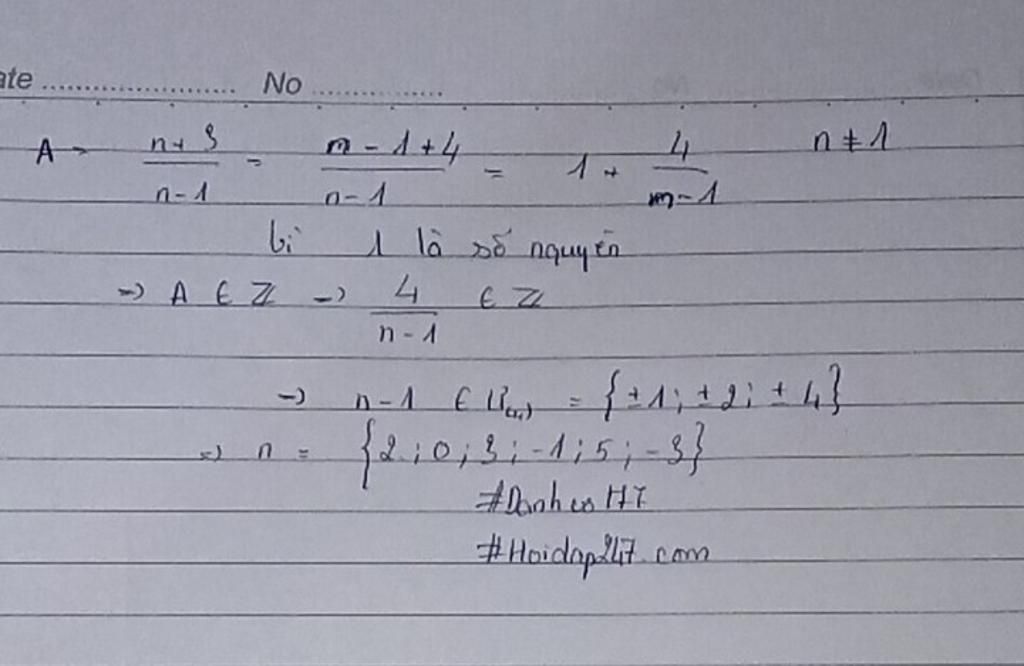 ate ........................ No ................
A = n+3/n-1 = n-1+4/n-1 = 1 + 4/n-1 n ≠ 1
Vì 1 là số nguyên
=> A ∈ Z => 4/n-1 ∈ Z
=> n-1 ∈ Ư(4) = {±1; ±2; ±4}
=> n = {2; 0; 3; -1; 5; -3}
#Hoidap247.com